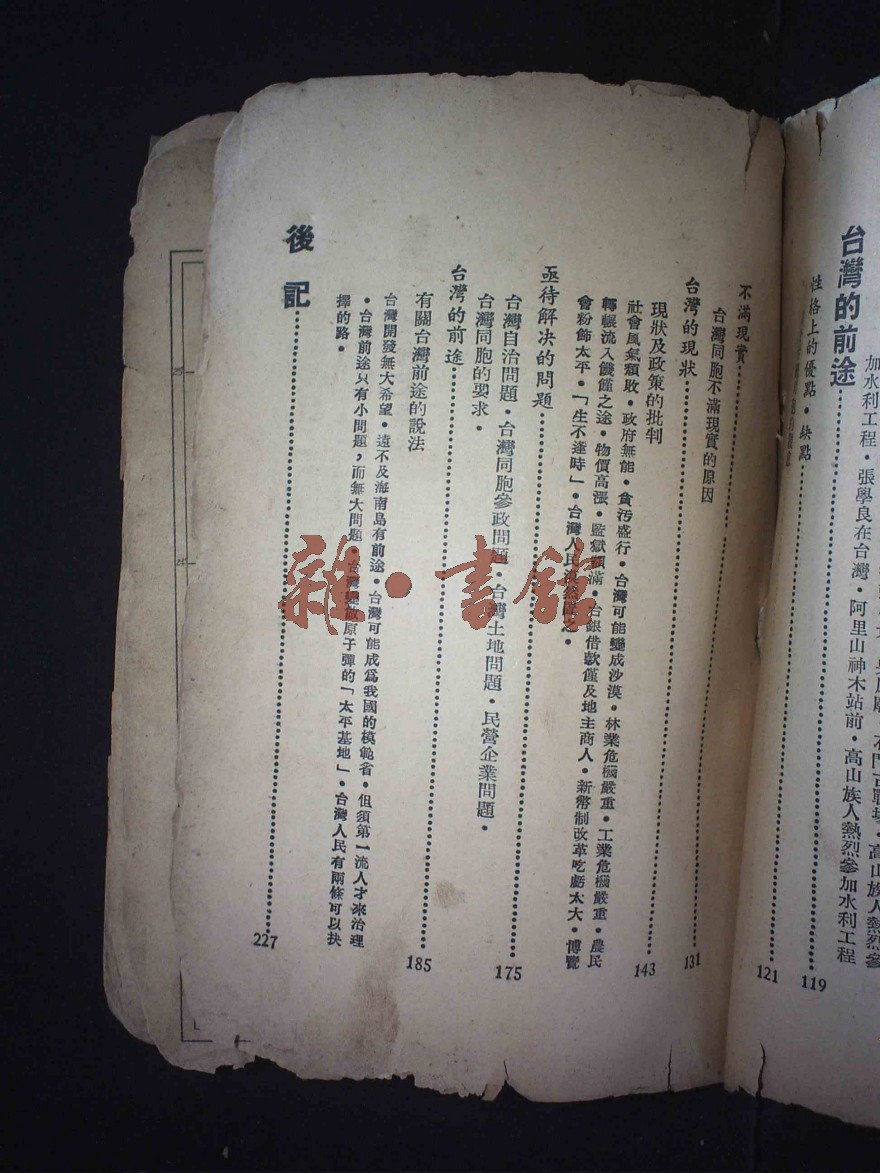 加水利工程•張學良在台灣•阿里山神木站前•高山族人熱烈參加水利工程
台灣的前途
119
性格上的優點•缺點
不滿現實
121
台灣同胞不滿現實的原因
台灣的現狀
131
現狀及政策的批判
143
社會風氣頹敗•政府無能•貪污盛行•台灣可能變成沙漠•林業危機嚴重•工業危機嚴重•農民
轉輾流入饑饉之途•物價高漲•監獄頗滿•台銀借款僅及地主商人•新幣制改革吃虧太大•博覽
會粉飾太平•「生不逢時」•台灣人民漠然處之•
亟待解決的問題
175
台灣自治問題•台灣同胞參政問題•台灣土地問題•民營企業問題•
台灣同胞的要求•
台灣的前途
185
有關台灣前途的說法
台灣開發無大希望•遠不及海南島有前途•台灣可能成爲我國的模範省•但須第一流人才來治理
•台灣前途只有小問題，而無大問題•台灣變做原子彈的「太平基地」•台灣人民有兩條可以抉
擇的路•
後記
227
雜•書館